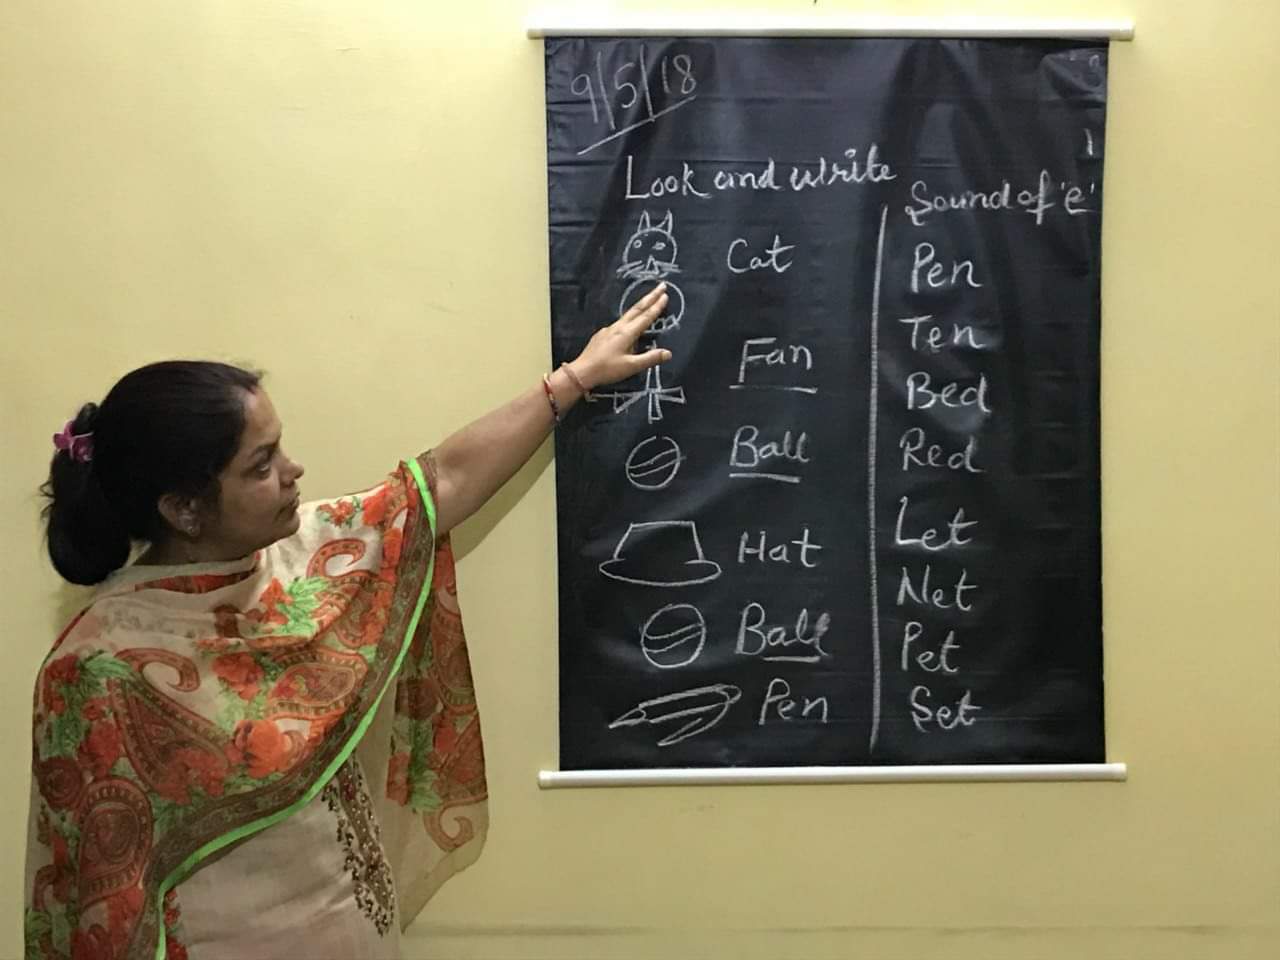 9/5/18
Look and write
Cat
Fan
Ball
Hat
Ball
Pen
Sound of 'e'
Pen
Ten
Bed
Red
Let
Net
Pet
Set